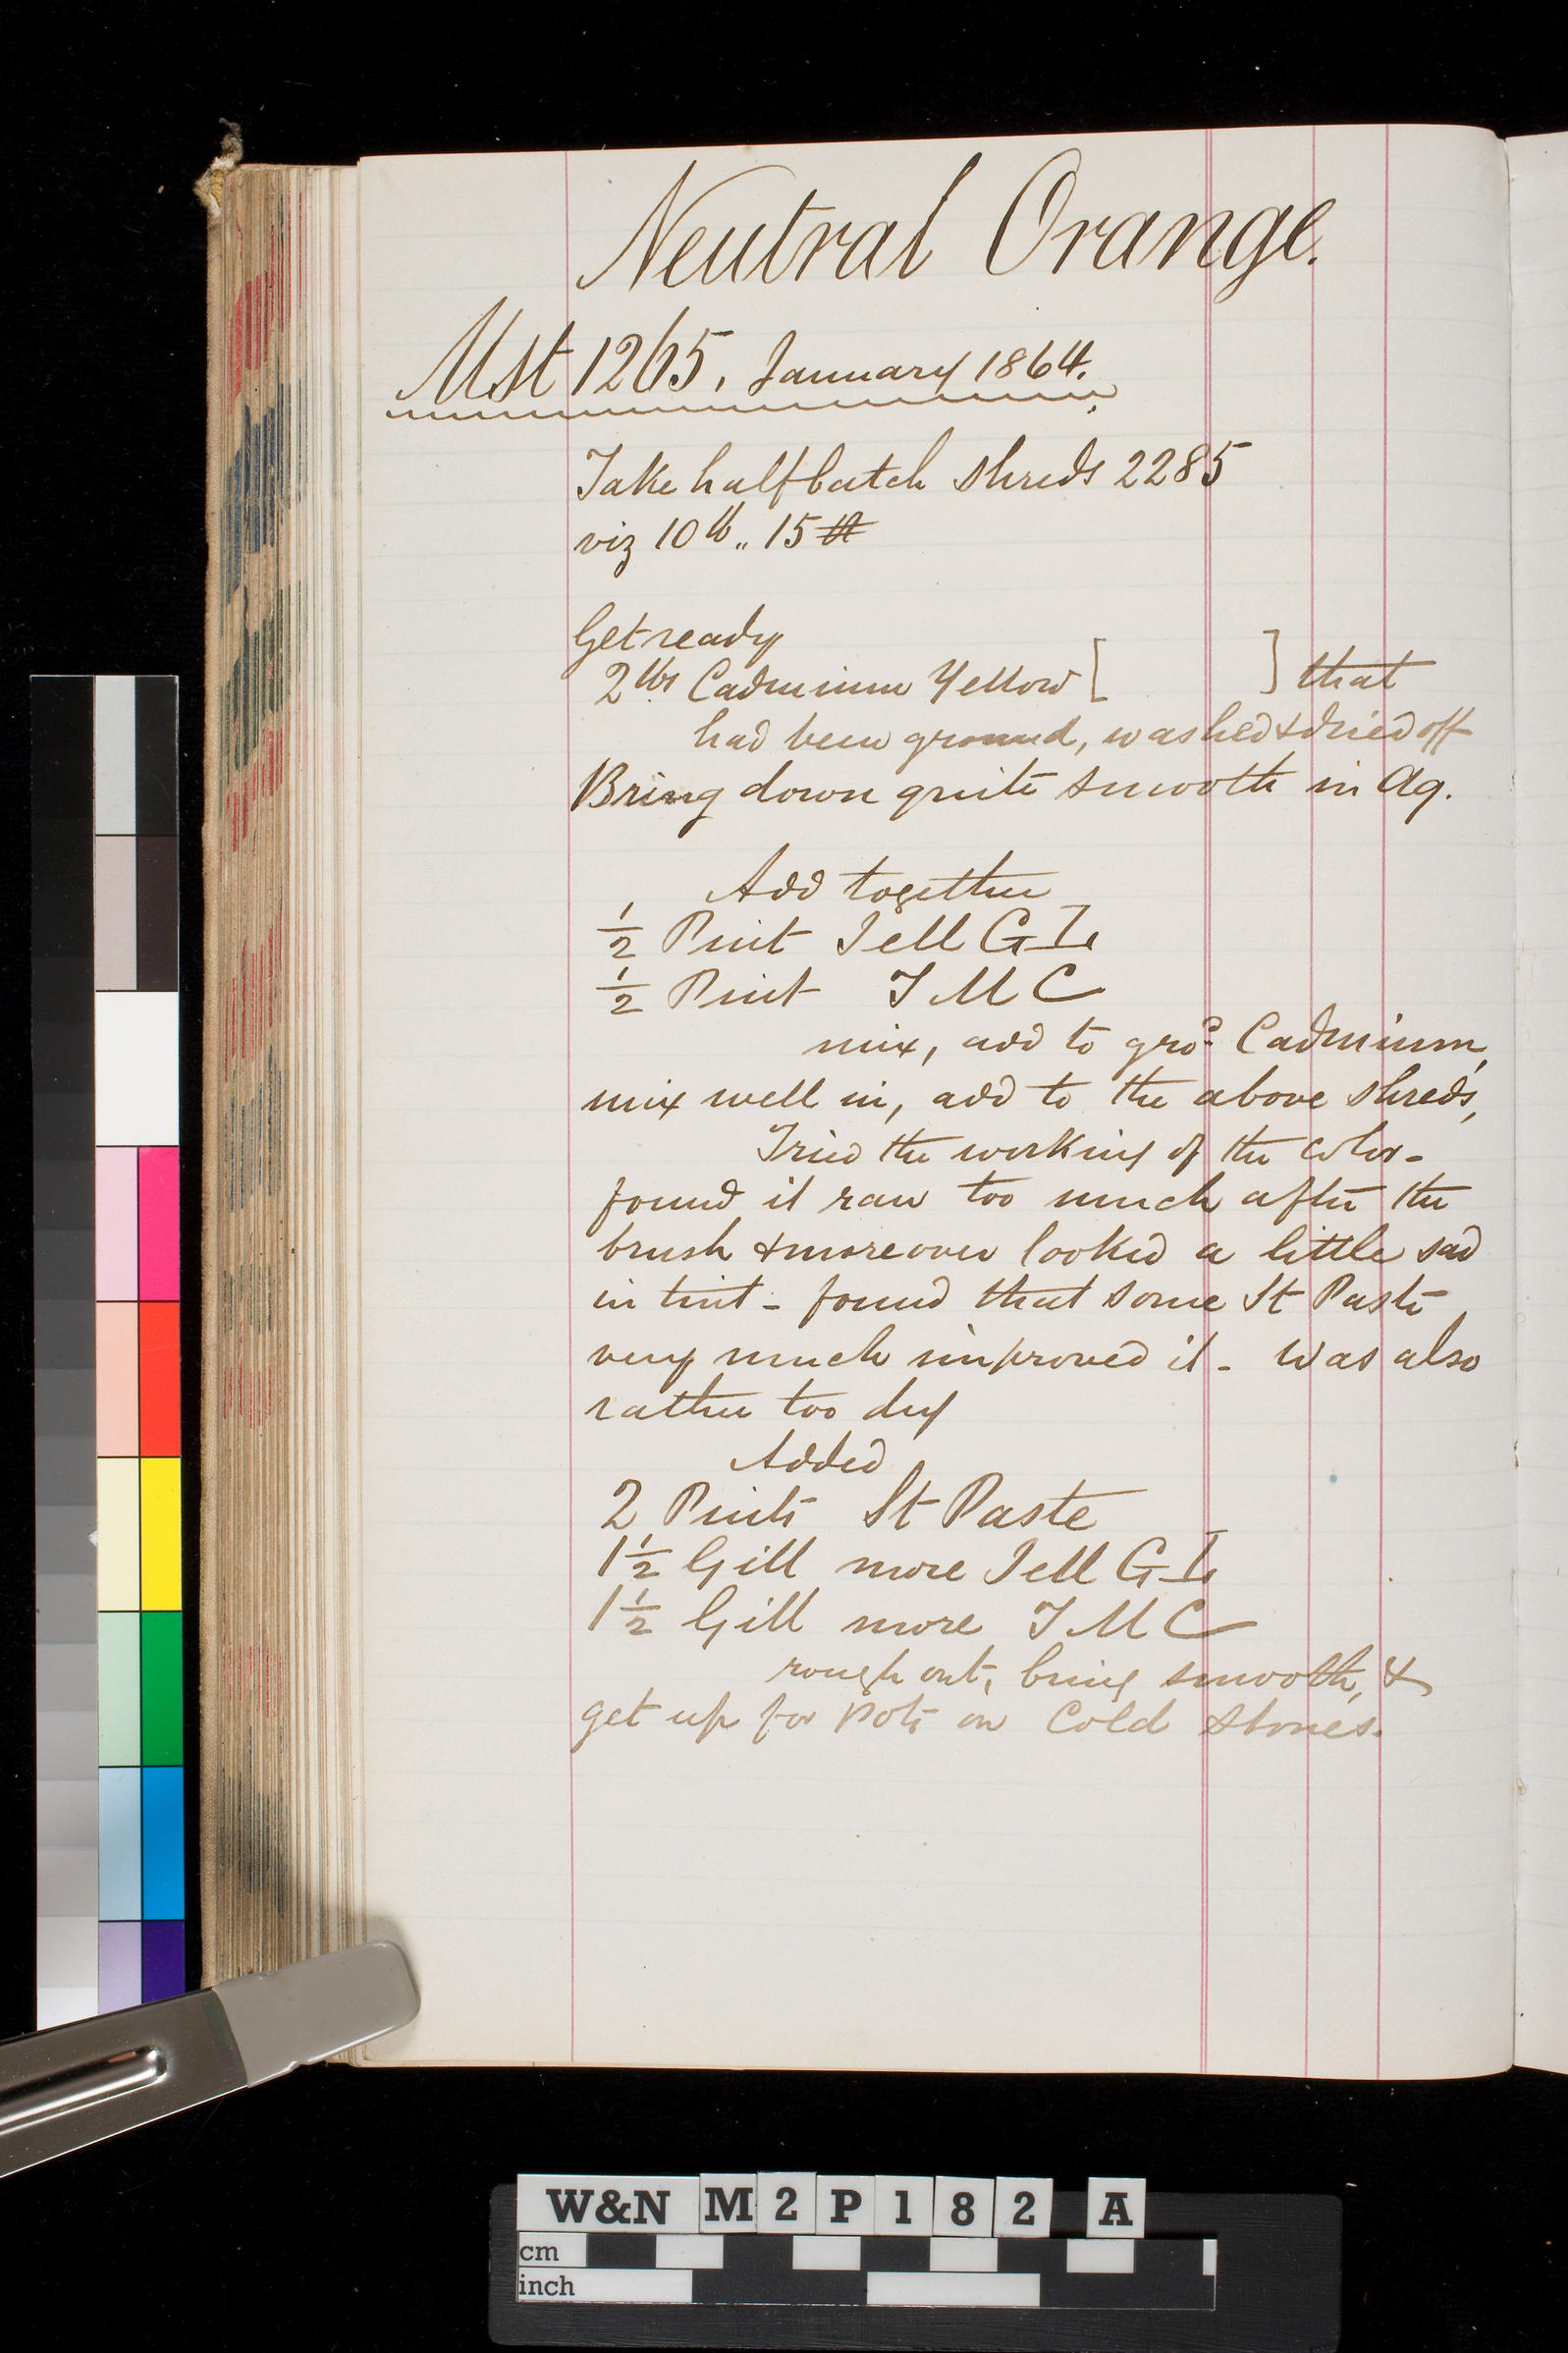 Neutral Orange.
Mst 1265, January 1864.
Take half batch shreds 2285
viz 10 lb,, 15
Get ready
2 lbs Cadmium Yellow [ ] that
had been ground, washed & dried off
Bring down quite smooth in Aq.
Add together
1/2 Pint Jell G I,
1/2 Pint J M C
mix, add to gro.d Cadmium,
mix well in, add to the above shreds,
Tried the working of the color -
found it ran too much after the
brush & moreover looked a little sad
in tint - found that some St Paste
very much improved it - Was also
rather too dry
Added
2 Pints St Paste
1 1/2 Gill more Jell G I,
1 1/2 Gill more J M C
rough out, bring smooth, &
get up for Pots on Cold Stones.
W&N M2P182 A
cm
inch